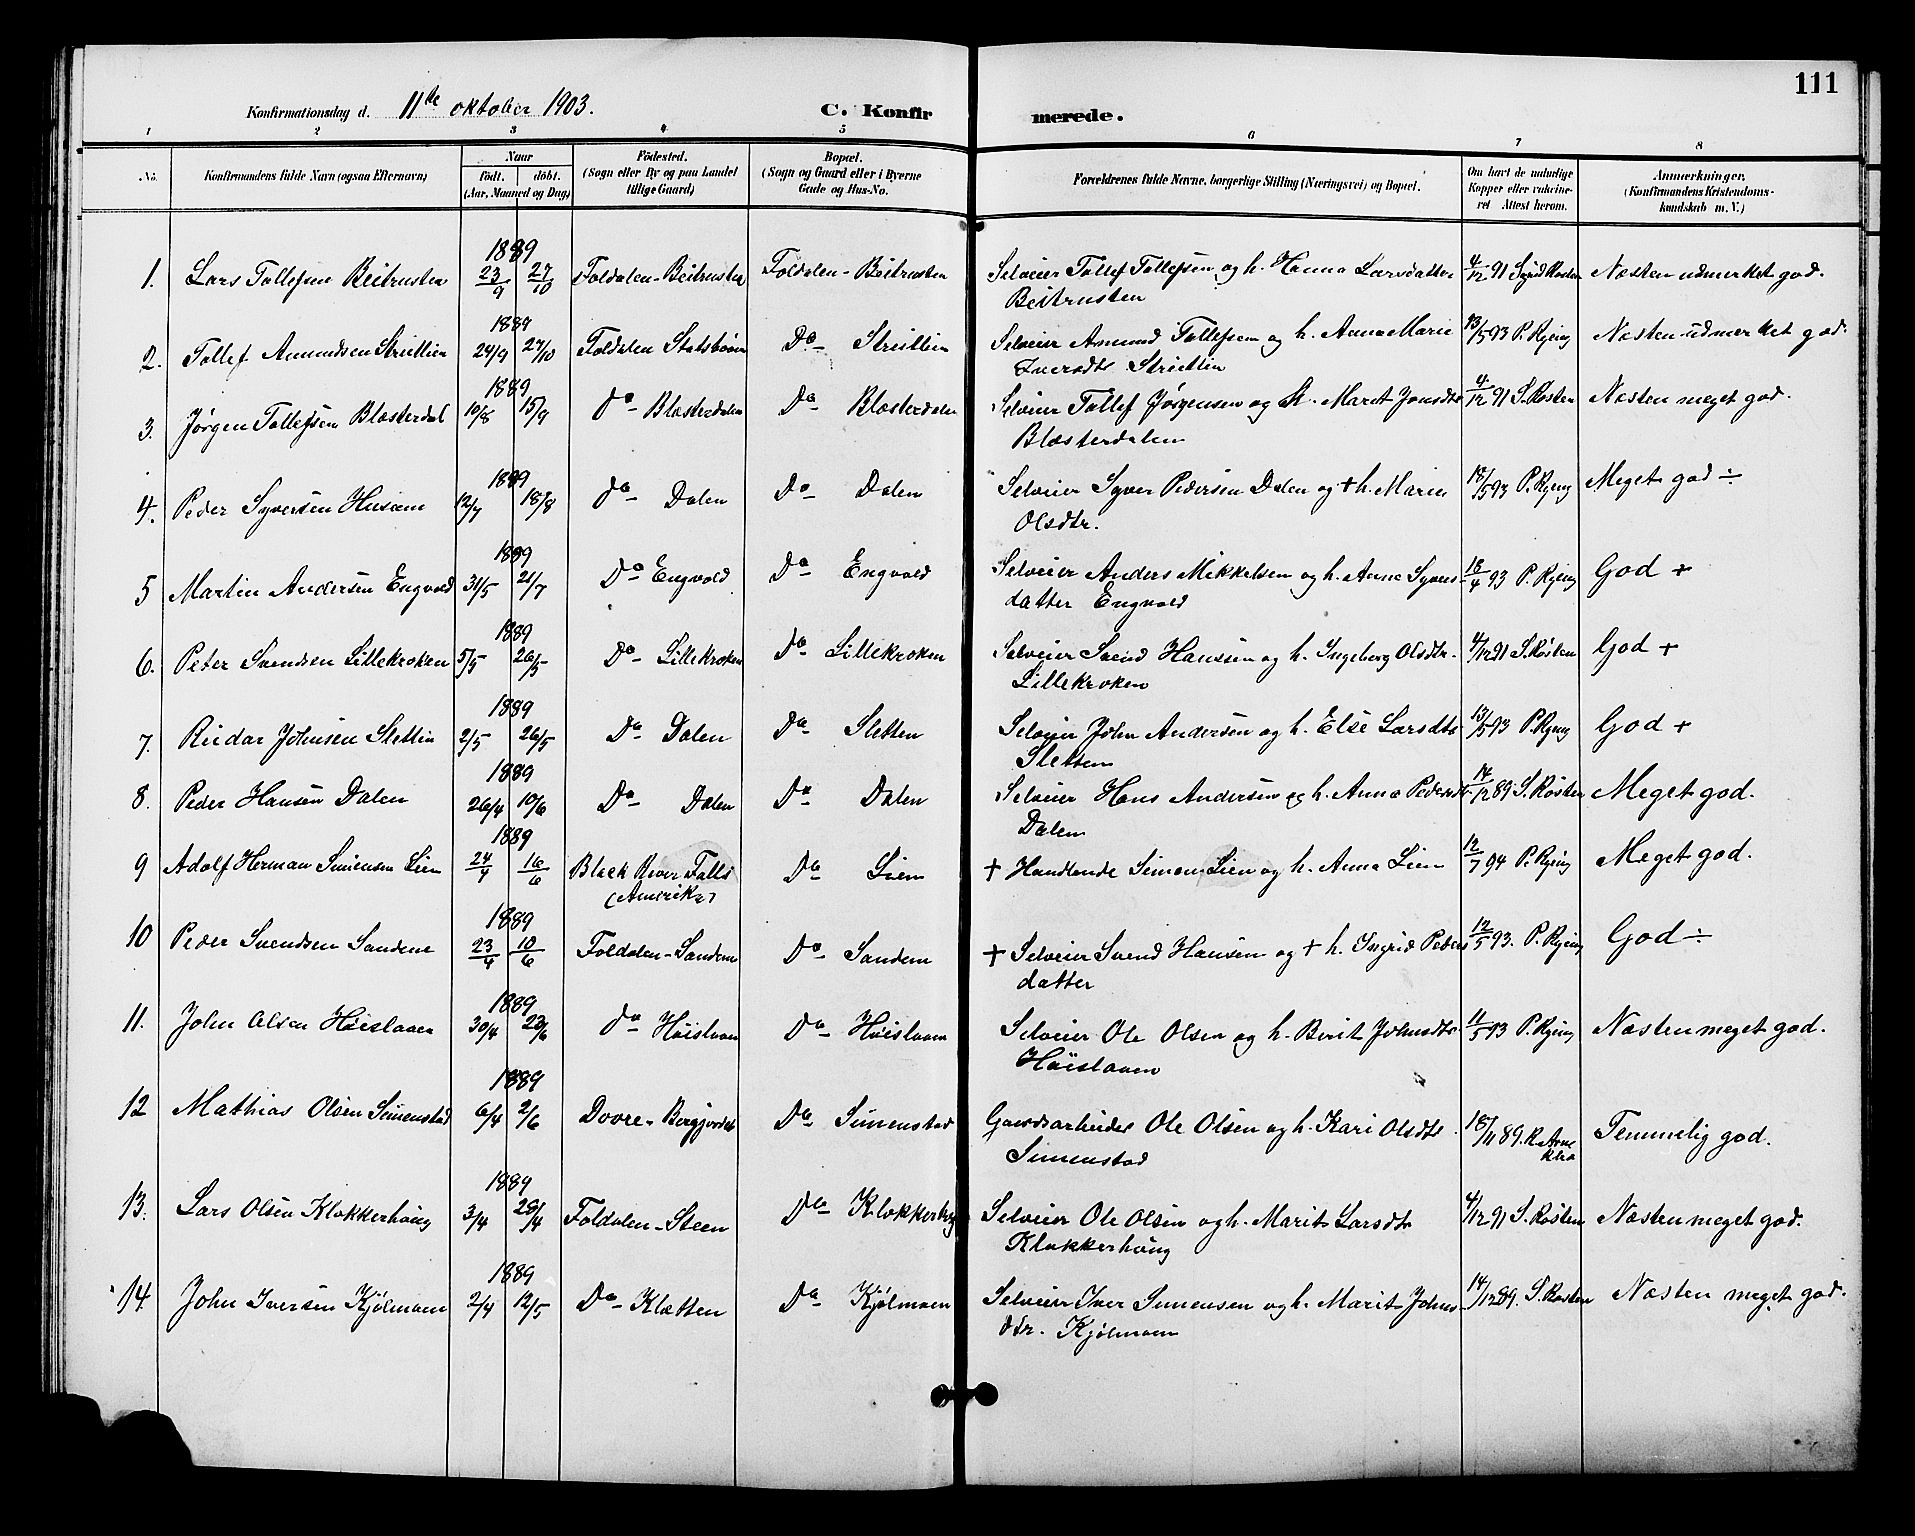 111
Konfirmationsdag d. 11te oktober 1903.
C. Konfirmerede.
1 2 3 4 5 6 7 8
No.
Konfirmandens fulde Navn (ogsaa Efternavn)
Naar
födt. döbt.
(Aar, Maaned og Dag)
Födested.
(Sogn eller By og paa Landet
tillige Gaard)
Bopæl.
(Sogn og Gaard eller i Byerne
Gade og Hus-No.
Forældrenes fulde Navne, borgerlige Stilling (Næringsvei) og Bopæl.
Om havt de naturlige
Kopper eller vakcine-
ret Attest herom.
Anmærkninger.
(Konfirmandens Kristendoms-
kundskab m. V.)
1889
1. Lars Tollefsen Beitrusten 23/9 27/10 Foldalen-Beitrusten Foldalen-Beitrusten Selveier Tollef Tollefsen og h. Hanna Larsdatter 4/12 91 Sigrid Røsten Næsten udmerket god.
Beitrusten
1889
2. Tollef Amundsen Streitlien 24/9 27/10 Foldalen Do- Streitlien Selveier Amund Tollefsen og h. Anna Marie 13/5 93 P. Ryeng Næsten udmerket god.
Iversdtr Streitlien
1889
3. Jørgen Tollefsen Blæsterdal 10/8 15/9 Do- Blæsterdalen Do- Blæsterdalen Selveier Tollef Jørgensen og h. Marit Jonsdtr 4/12 91 S. Røsten Næsten meget god.
Blæsterdalen
1889
4. Peder Syversen Husom 12/7 18/8 Do- Dalen Do- Dalen Selveier Syver Pedersen Dalen og + h. Marie 18/5 93 P. Ryeng Meget god ÷
Olsdtr.
1889
5 Martin Andersen Engvold 31/5 21/7 Do- Engvold Do- Engvold Selveier Anders Mikkelsen og h. Anne Syvers- 18/4 93 P. Ryeng God +
datter Engvold
1889
6. Peter Svendsen Lillekroken 5/5 26/5 Do- Lillekroken Do- Lillekroken Selveier Svend Hanssen og h. Ingeborg Olsdtr. 4/12 91 S. Røsten God +
Lillekroken
1889
7. Reidar Johnsen Sletten 2/5 26/5 Do- Dalen Do- Sletten Selveier John Andersen og h. Else Larsdtr 13/5 93 P. Ryeng God +
Sletten
1889
8. Peder Hansen Dalen 26/4 10/6 Do- Dalen Do- Dalen Selveier Hans Andersen og h. Anne Pedersdtr 14/12 89. S. Røsten Meget god.
Dalen
1889
9 Adolf Herman Simensen Lien 24/4 16/6 Black River Falls Do- Lien + Handlende Simon Lien og h. Anna Lien 12/7 94 P. Ryeng Meget god.
(Amerika)
1889
10 Peder Svendsen Sandene 23/4 10/6 Foldalen-Sandene Do- Sandene + Selveier Svend Hansen og + h. Ingrid Peders 12/5 93. P. Ryeng God ÷
datter
1889
11. John Olsen Høislaaen 30/4 23/6 Do- Høislaaen Do- Høislaaen Selveier Ole Olsen og h. Berit Johnsdtr 11/5 93 P. Ryeng Næsten meget god.
Høislaaen
1889
12 Mathias Olsen Simenstad 6/4 2/6 Dovre- Do- Simenstad Gaardsarbeider Ole Olsen og h. Kari Olsdtr 18/11 89. Temmelig god.
Simenstad
1889
13. Lars Olsen Klokkerhaug 3/4 28/4 Foldalen-Steen Do- Klokkerhaug Selveier Ole Olsen og h. Marit Larsdtr 4/12 91 S. Røsten Næsten meget god.
Klokkerhaug
1889
14. John Iversen Kjølmoen 2/4 12/5 Do- Klætten Do- Kjølmoen Selveier Iver Simensen og h. Marit Johns- 14/12 89. S. Røsten Næsten meget god.
dtr. Kjølmoen